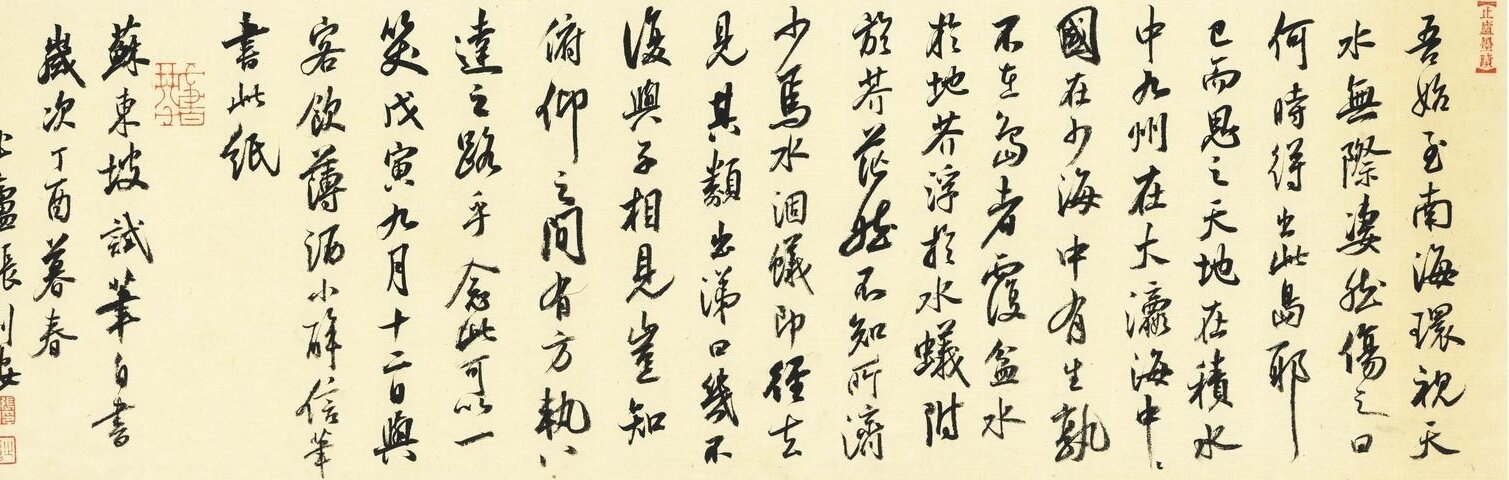 【止盧墨蹟】
吾始至南海環視天
水無際淒然傷之曰
何時得出此島耶
已而思之天地在積水
中九州在大瀛海中
國在少海中有生孰
不在島者覆盆水
於地芥浮於水蟻附
於芥茫然不知所濟
少焉水涸蟻即徑去
見其類出涕曰幾不
復與子相見豈知
俯仰之間有方軌八
達之路乎念此可以一
笑戊寅九月十二日與
客飲薄酒小醉信筆
書此紙
蘇東坡試筆自書
歲次丁酉暮春